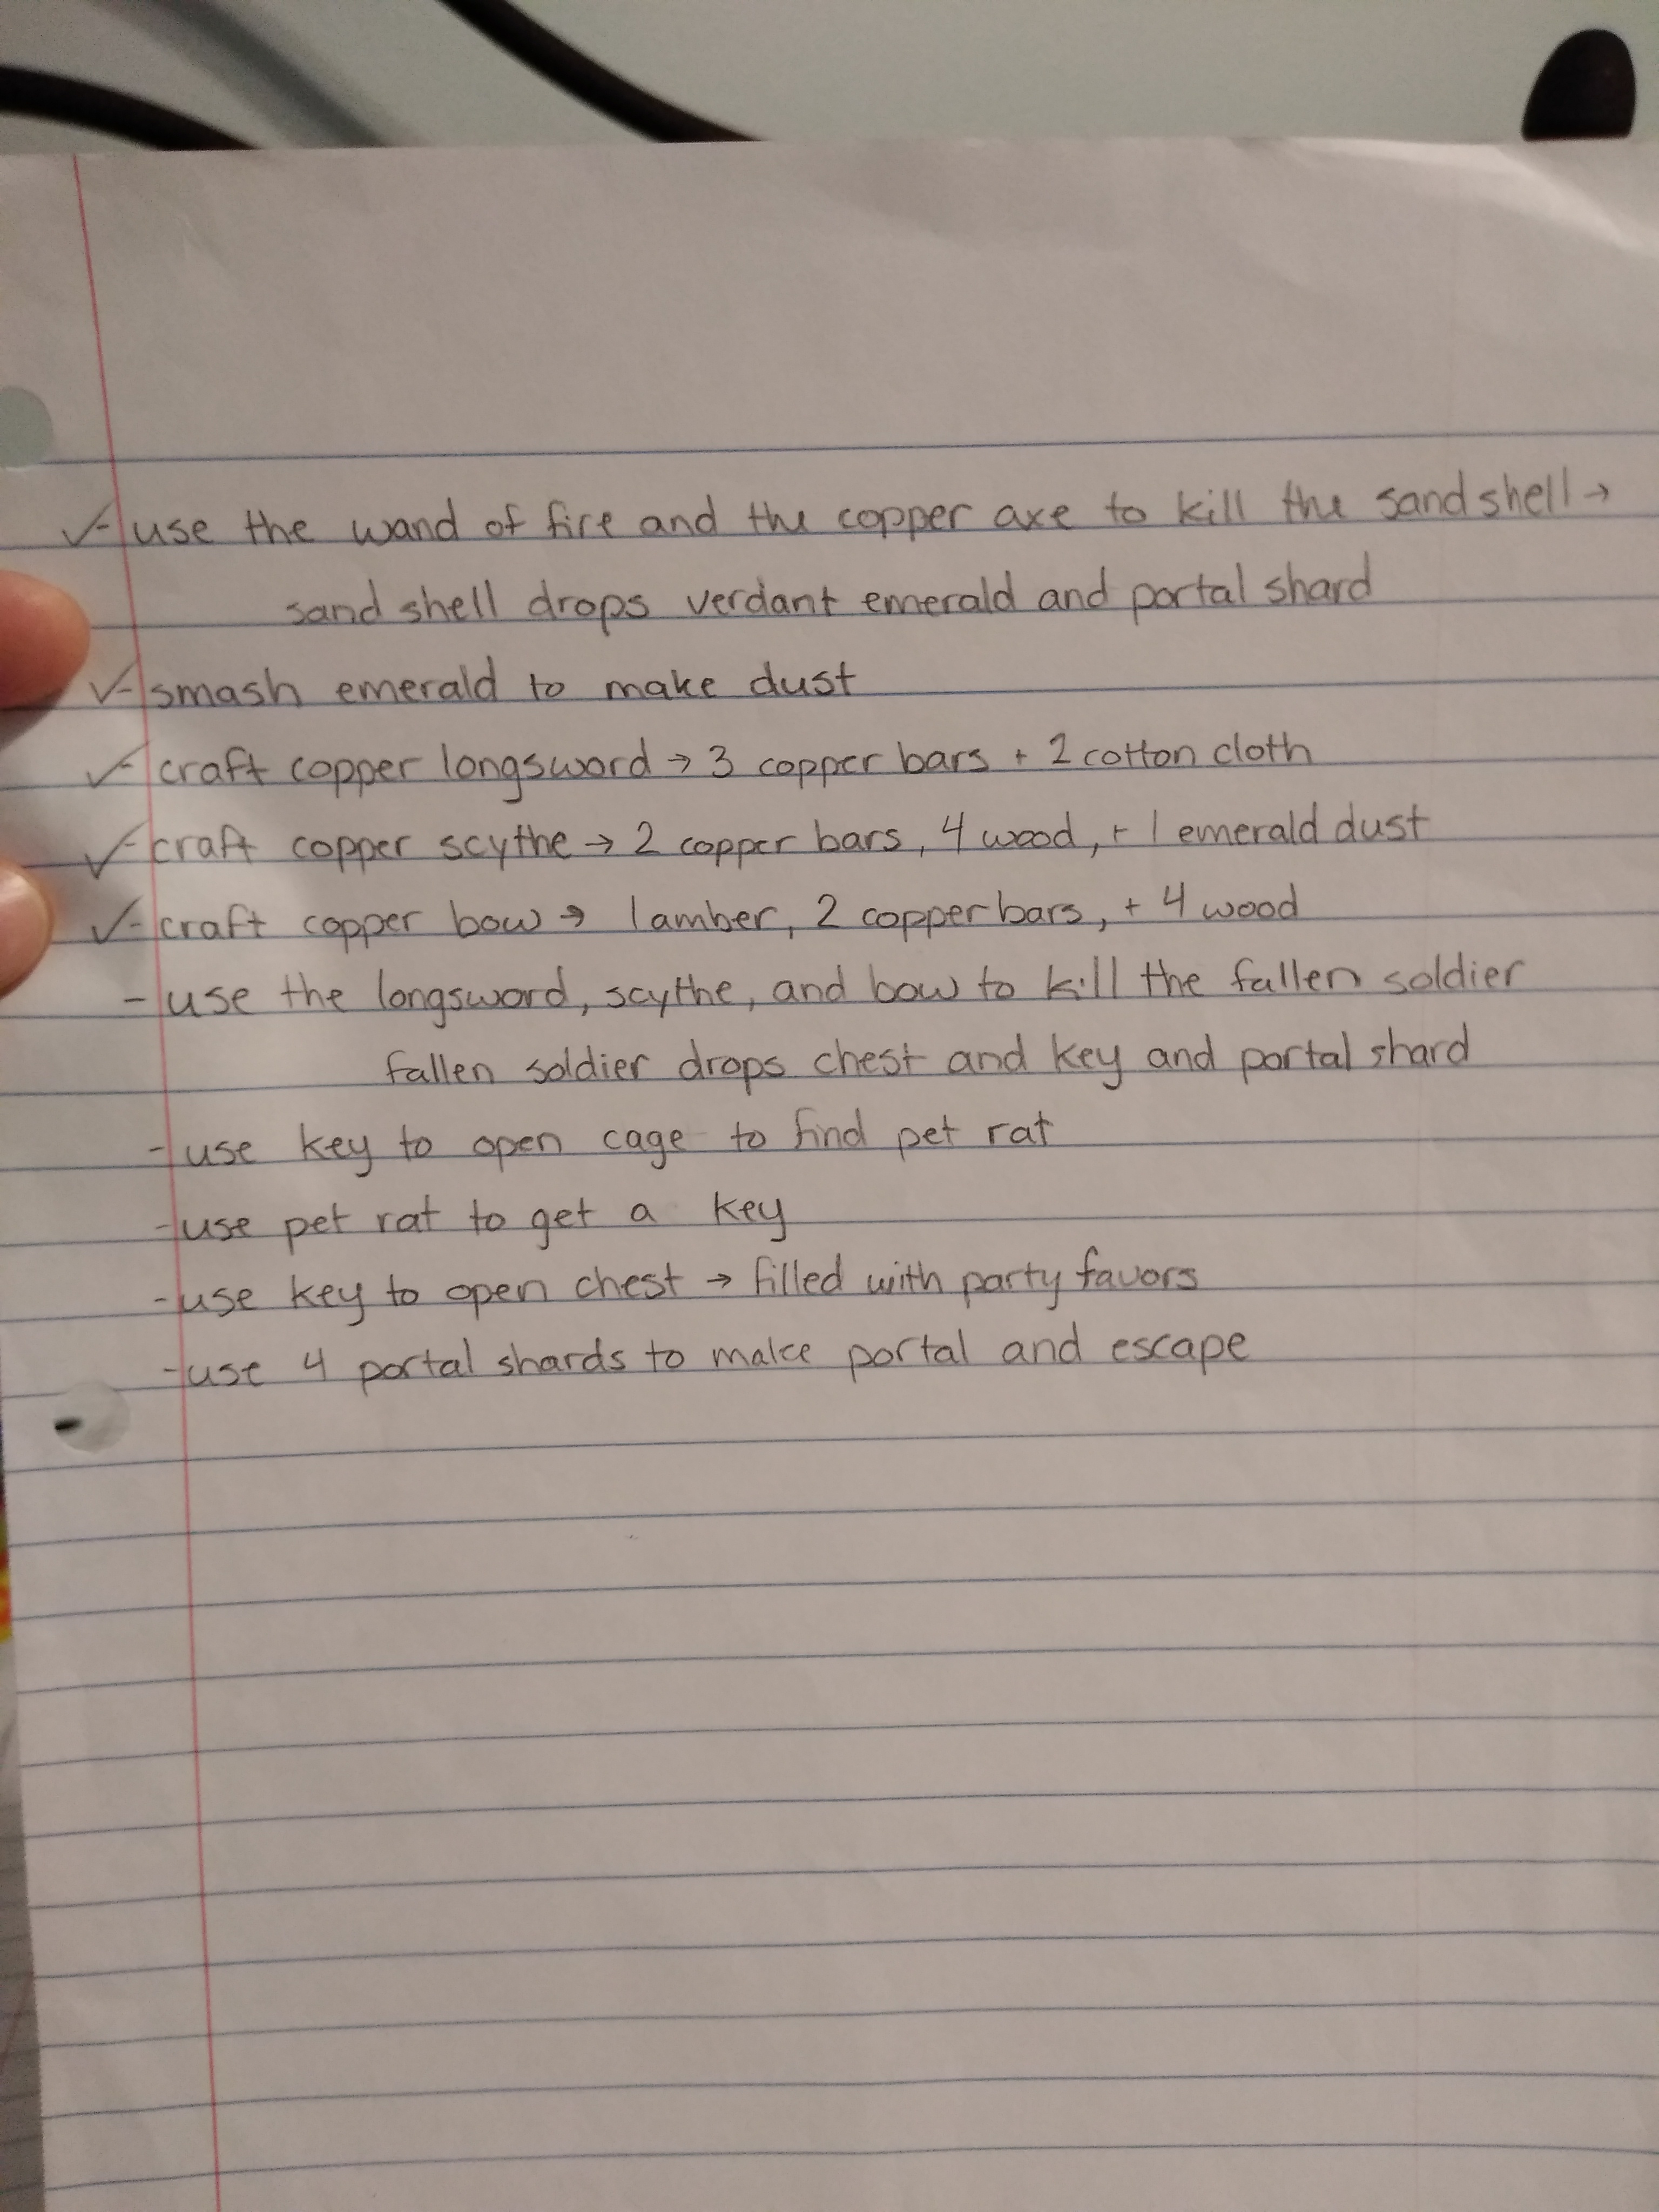 ✓-use the wand of fire and the copper axe to kill the sand shell →
sand shell drops verdant emerald and portal shard
✓-smash emerald to make dust
✓-craft copper longsword → 3 copper bars + 2 cotton cloth
✓-craft copper scythe → 2 copper bars, 4 wood, + 1 emerald dust
✓-craft copper bow → 1 amber, 2 copper bars, + 4 wood
-use the longsword, scythe, and bow to kill the fallen soldier
fallen soldier drops chest and key and portal shard
-use key to open cage to find pet rat
-use pet rat to get a key
-use key to open chest → filled with party favors
-use 4 portal shards to make portal and escape